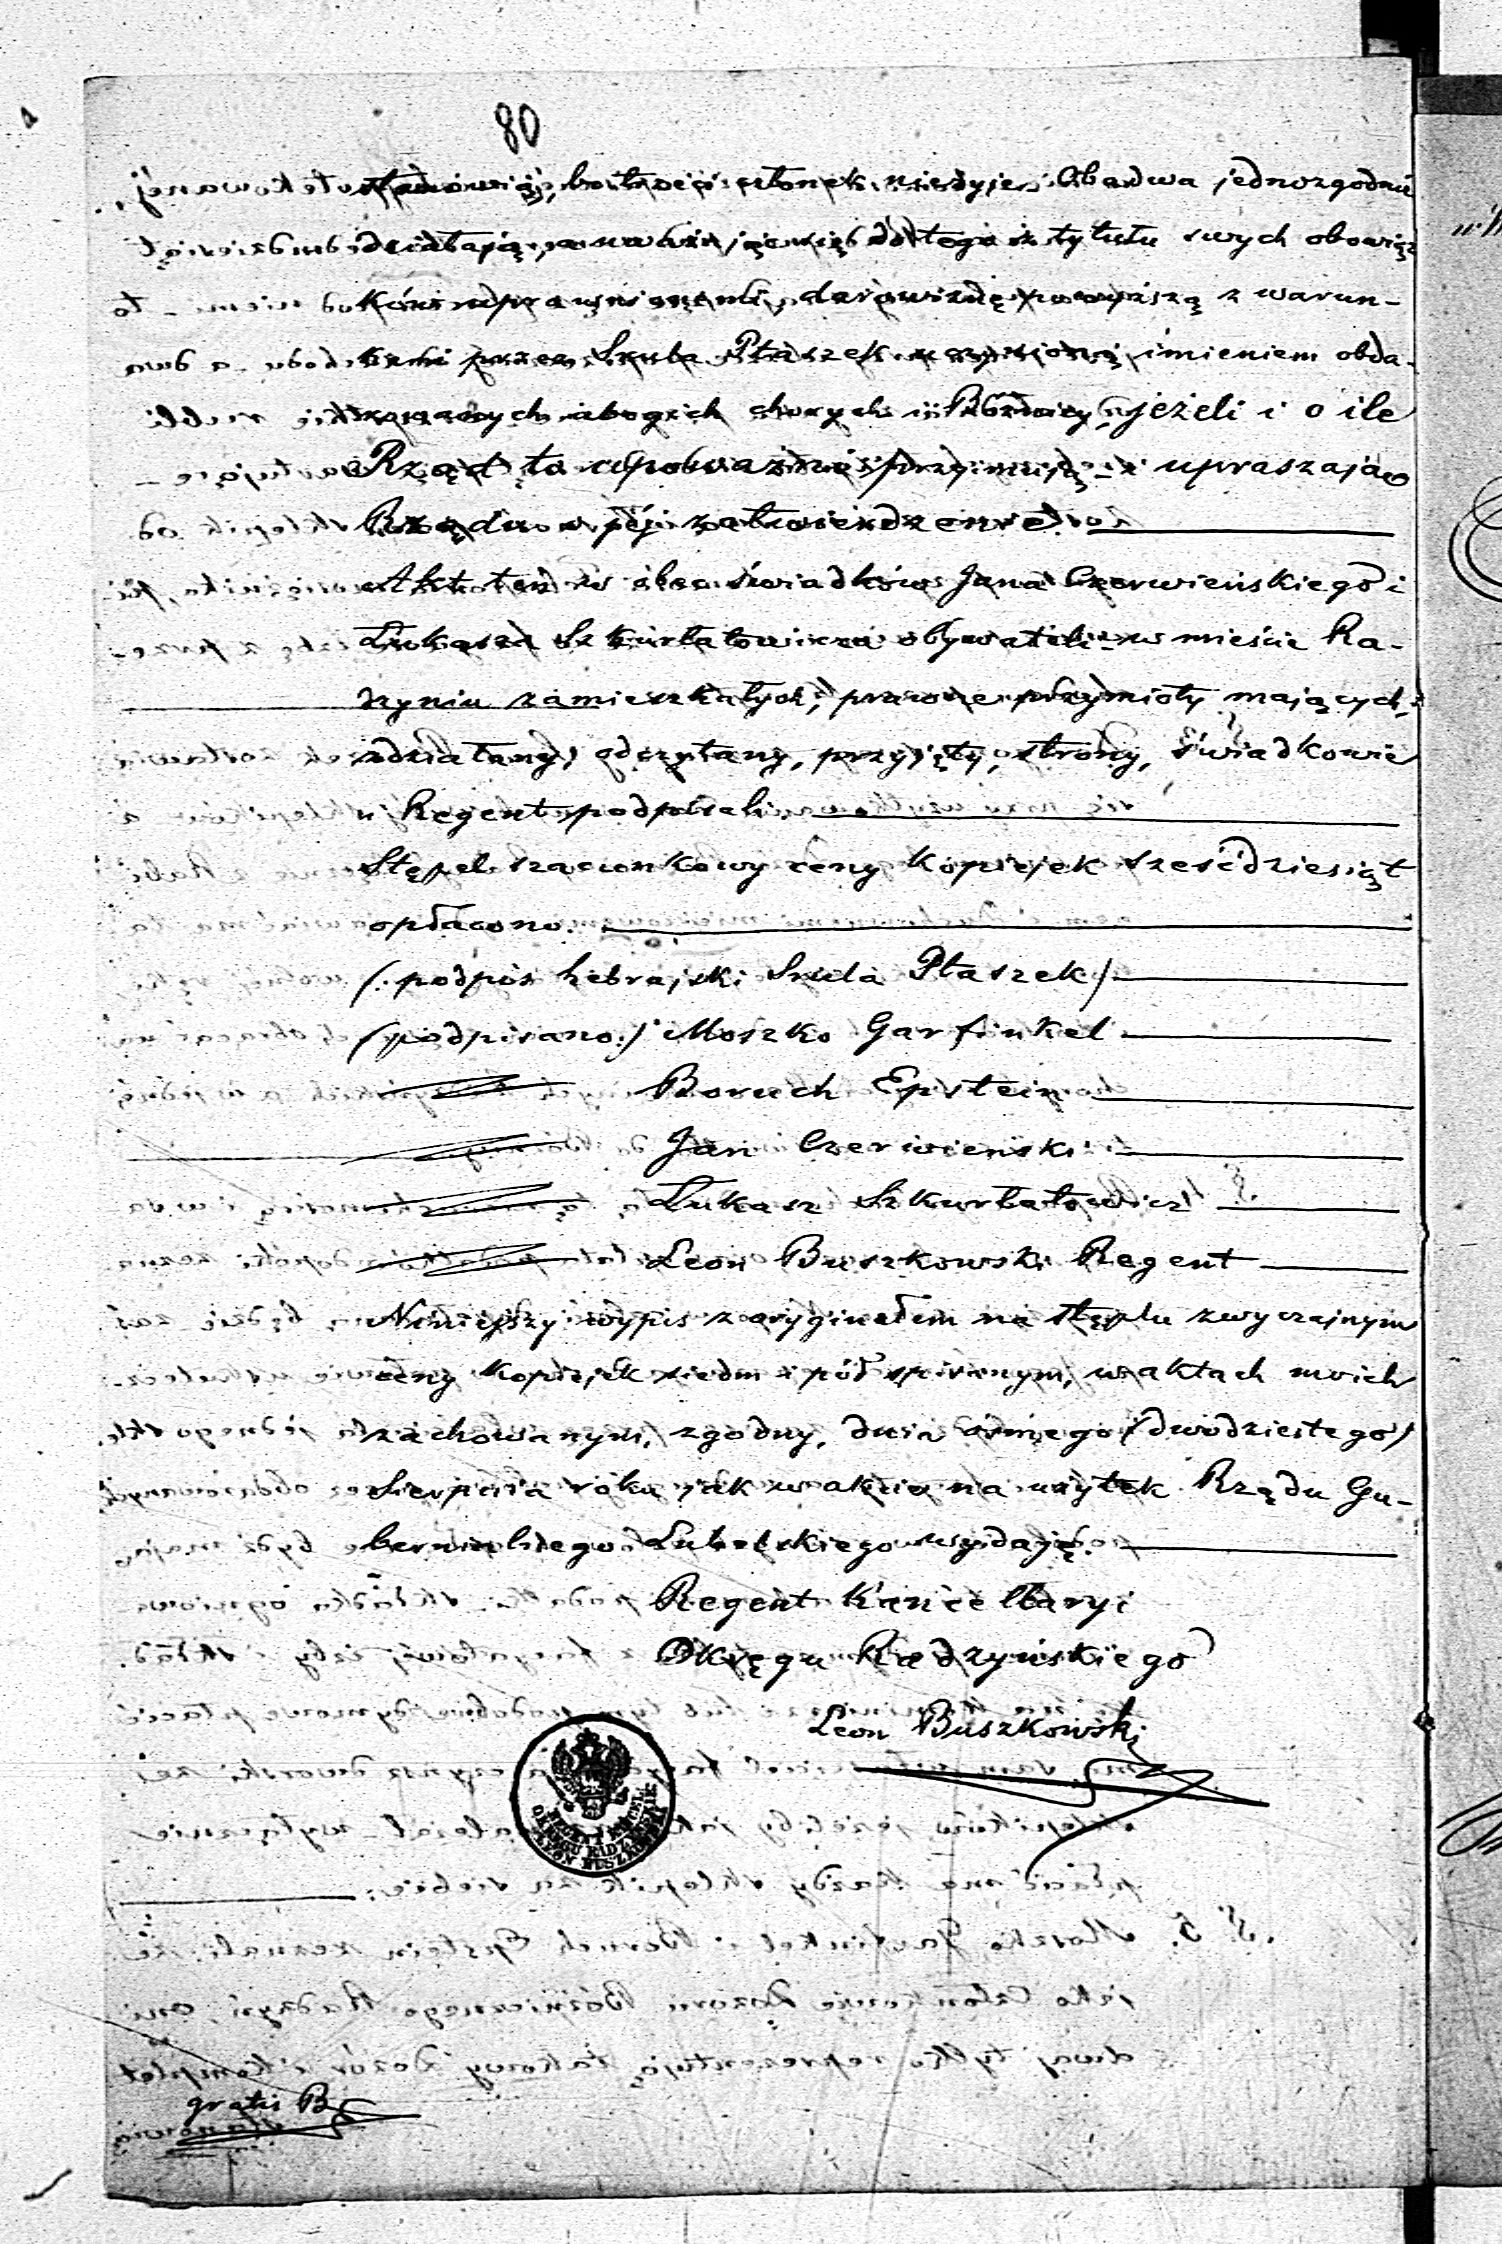 80
stanowią, bo trzeci członek nieżyje. Obadwa jednozgodnie
działają, a uważając się do tego z tytułu swych obowiąz
ków uprawnionemi, darowiznę powyższą z warun-
kami przez Srula Ptaszek uczynioną, imieniem obda-
rowanych ubogich chorych i Bóżnicy, jeżeli i o ile
Rząd to upoważni przyjmują - i upraszają
Rządu o jéj zatwierdzenie.
Akt ten w obec świadków Jana Czerwieńskiego i
Łukasza Szkurłatowicza obywateli w mieście Ra-
dzyniu zamieszkałych, prawne przymioty mających,
zdziałany, odczytany, przyjęty, strony, świadkowie
i Regent podpisali.
Stępel szacunkowy ceny kopiejek sześćdziesiąt
opłacono.
(: podpis hebrajski Srula Ptaszek)
(podpisano:) Moszko Garfinkel
Boruch Epstein
Jan Czerwieński
Łukasz Szkurłatowicz
Leon Buszkowski Regent
Niniejszy wypis z oryginałem na stęplu zwyczajnym
ceny kopiejek siedm i pół spisanym, w aktach moich
zachowanym, zgodny, dnia ósmego (dwódziestego)
Sierpnia roku jak w akcie na użytek Rządu Gu-
bernialnego Lubelskiego wydaję.
Regent Kancellaryi
Okręgu Radzyńskiego
Leon Buszkowski
REGENT KANCEL.
OKRĘGU RADZYŃSKIE
LEON BUSZKOWSKI
gratis B